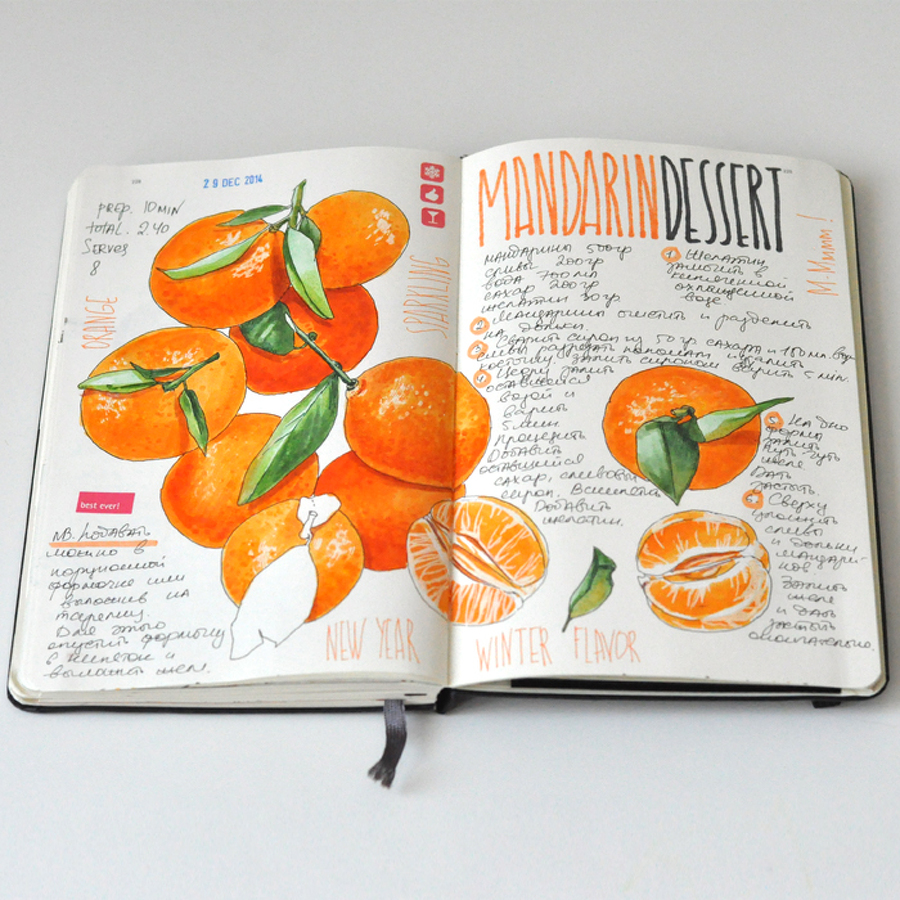 29 DEC 2014
PREP. 10 MIN
TOTAL. 2.40
SERVES
8
ORANGE
SPARKLING
best ever!
NB. Подавать
можно в
порционной
формочке или
выложив на
тарелку.
Для этого
опустить формочку
в кипяток и
выложить желе.
NEW YEAR
MANDARIN DESSERT
M-Mmmm!
мандарины 500гр
сливы 200гр
вода 700мл
сахар 200гр
желатин 30гр
1 Желатин
замочить в
кипяченной
охлажденной
воде
2 Мандарины очистить и разделить
на дольки.
3 Сварить сироп из 50гр сахара и 100 мл. воды
Сливы разрезать пополам, удалить
косточку, залить сиропом, варить 5 min.
4 Цедру залить
оставшейся
водой и
варить
5 мин.
Процедить
Добавить
оставшийся
сахар, сливовый
сироп. Вскипятить
Добавить
желатин.
5 На дно
формы
залить
чуть-чуть
желе
Дать
застыть.
6 Сверху
уложить
сливы
и дольки
мандари-
нов
Залить
желе
и дать
застыть
окончательно.
WINTER FLAVOR